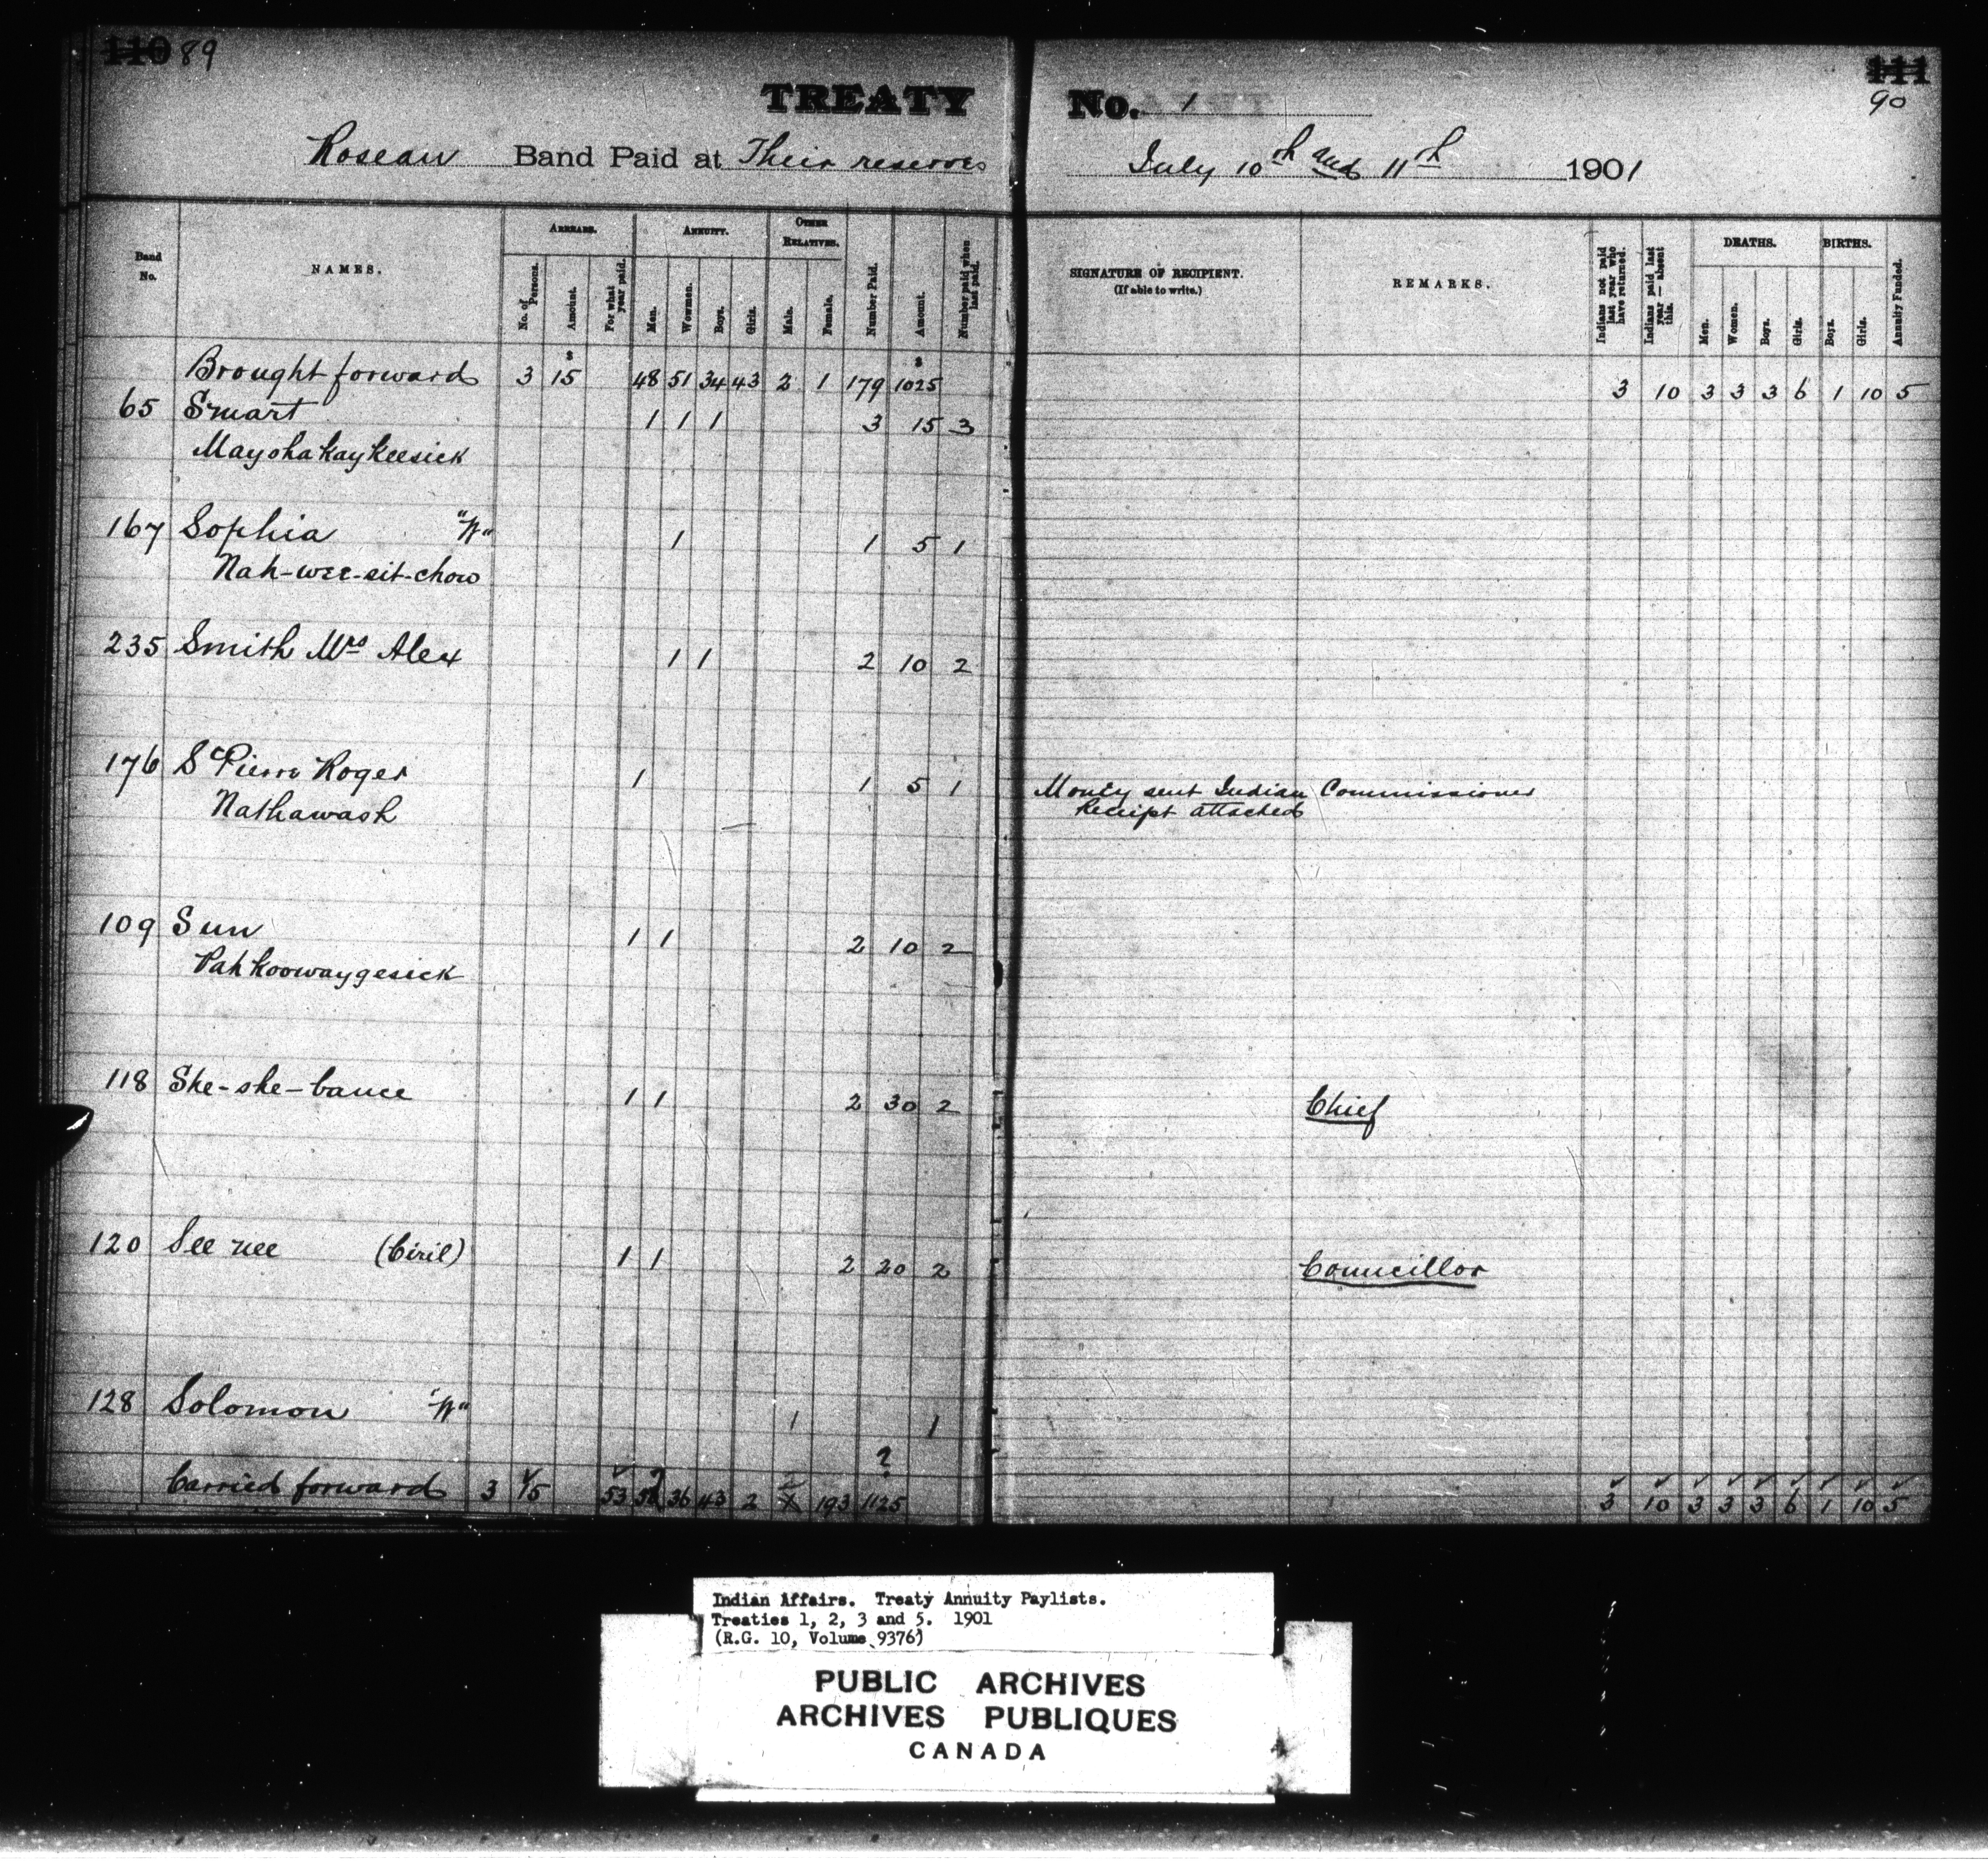 110 89
111
90
TREATY No. 1
Roseau Band Paid at Their reserves July 10th and 11th 1901
Band No.
NAMES.
ARREARS.
No. of Persons.
Amount.
For what year paid.
ANNUITY.
Men.
Women.
Boys.
Girls.
OTHER RELATIVES.
Male.
Female.
Number Paid.
Amount.
Number paid when last paid.
SIGNATURE OF RECIPIENT.
(If able to write.)
REMARKS.
Indians not paid last year who have returned.
Indians paid last year — absent this.
DEATHS.
Men.
Women.
Boys.
Girls.
BIRTHS.
Boys.
Girls.
Annuity Funded.
Brought forward 3 15 48 51 34 43 2 1 179 1025 3 10 3 3 3 6 1 10 5
65 Smart 1 1 1 3 15 3
Mayohakaykeesick
167 Sophia "W" 1 1 5 1
Nah-wee-sit-chow
235 Smith Mrs Alex 1 1 2 10 2
176 St Pierre Roger 1 1 5 1 Money sent Indian Commissioner
Nathawash Receipt attached
109 Sun 1 1 2 10 2
Pahkoowaygesick
118 She-she-bance 1 1 2 30 2 Chief
120 See nee (Ciril) 1 1 2 20 2 Councillor
128 Solomon "W" 1 1
?
Carried forward 3 15 53 36 43 2 193 1125 3 10 3 3 3 6 1 10 5
Indian Affairs. Treaty Annuity Paylists.
Treaties 1, 2, 3 and 5. 1901
(R.G. 10, Volume 9376)
PUBLIC ARCHIVES
ARCHIVES PUBLIQUES
CANADA